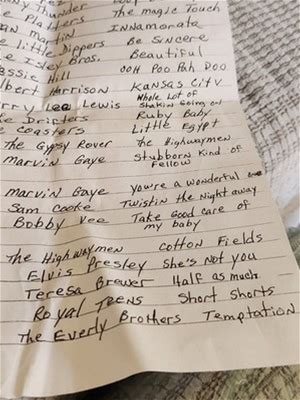 Thunder
Platters The Magic Touch
an martin INNamorata
e little Dippers Be Sincere
e Isley Bros. Beautiful
essie Hill OOH Poo Pah Doo
lbert Harrison Kansas City
rry Lee Lewis Whole Lot of
Shakin Going on
e Drifters Ruby Baby
e Coasters Little Egypt
The Gypsy Rover The Highwaymen
marvin Gaye Stubborn Kind of
Fellow
marvin Gaye you're a wonderful one
Sam Cooke Twistin the Night away
Bobby Vee Take Good care of
my baby
The Highwaymen Cotton Fields
Elvis Presley She's Not you
Teresa Brewer Half as much
Royal Teens Short Shorts
The Everly Brothers Temptation